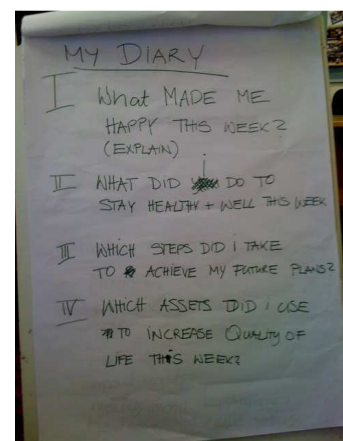 MY DIARY
I What MADE ME
HAPPY THIS WEEK?
(EXPLAIN)
II WHAT DID i DO TO
STAY HEALTHY + WELL THIS WEEK
III WHICH STEPS DID i TAKE
TO ACHIEVE MY FUTURE PLANS?
IV WHICH ASSETS DID i USE
TO INCREASE QUALITY OF
LIFE THIS WEEK?